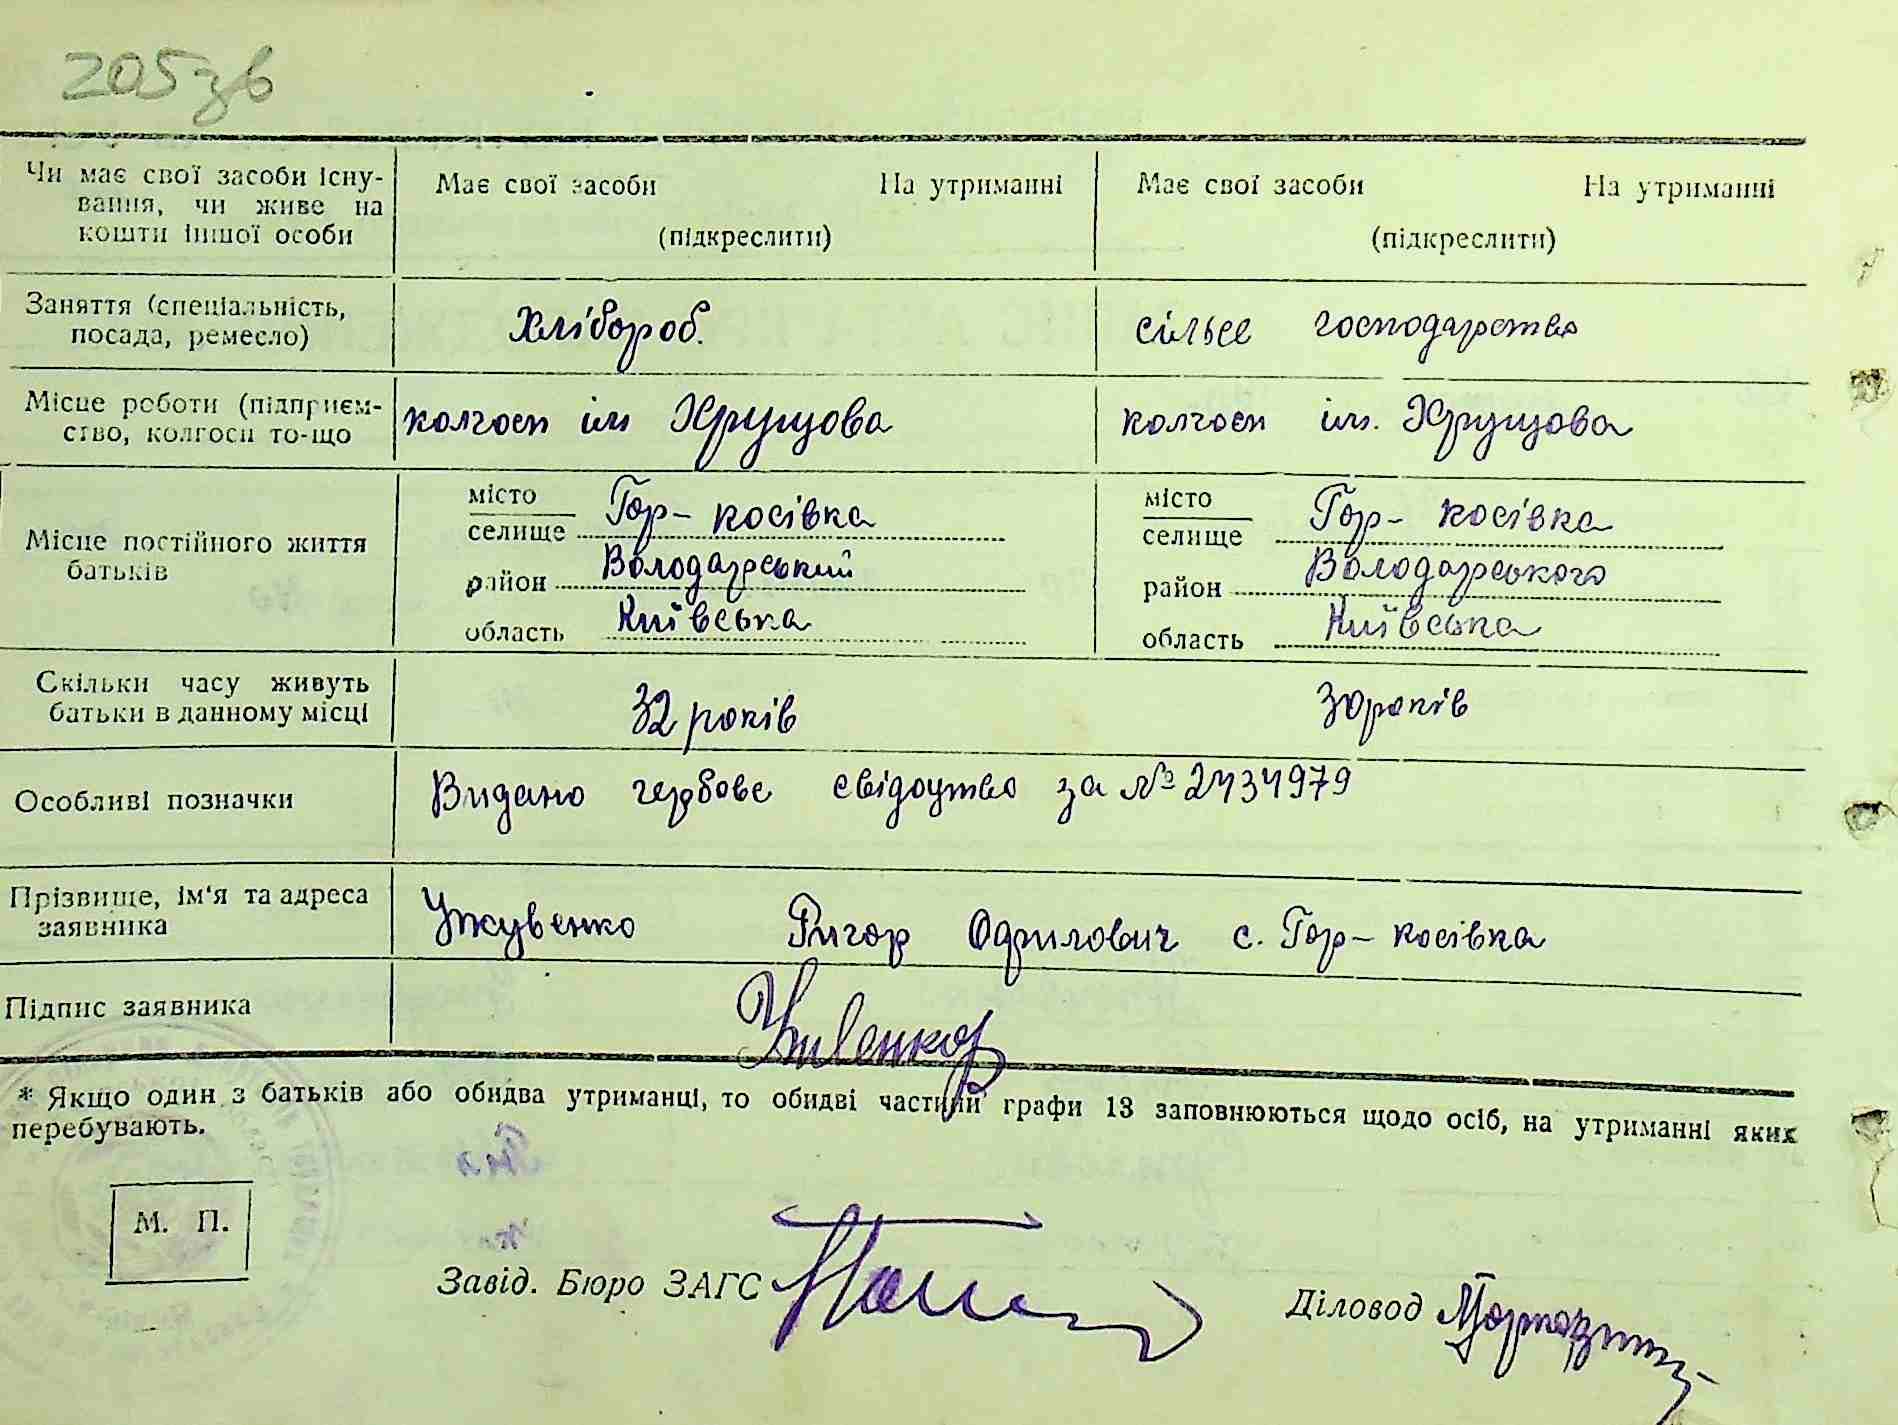 205зв
Чи має свої засоби існу-
вання, чи живе на
кошти іншої особи
Має свої засоби На утриманні
(підкреслити)
Має свої засоби На утриманні
(підкреслити)
Заняття (спеціальність,
посада, ремесло)
Хлібороб.
сільсе господарство
Місце роботи (підприєм-
ство, колгосп то-що
колгосп ім Хрущова
колгосп ім. Хрущова
Місце постійного життя
батьків
місто
селище Гор-косівка
район Володарський
область Київська
місто
селище Гор-косівка
район Володарського
область Київська
Скільки часу живуть
батьки в данному місці
32 років
30років
Особливі позначки
Видано гербове свідоцтво за № 2434979
Прізвище, ім'я та адреса
заявника
Ужувенко Григор Одрилович с. Гор-косівка
Підпис заявника
* Якщо один з батьків або обидва утриманці, то обидві частини графи 13 заповнюються щодо осіб, на утриманні яких
перебувають.
М. П.
Завід. Бюро ЗАГС
Діловод